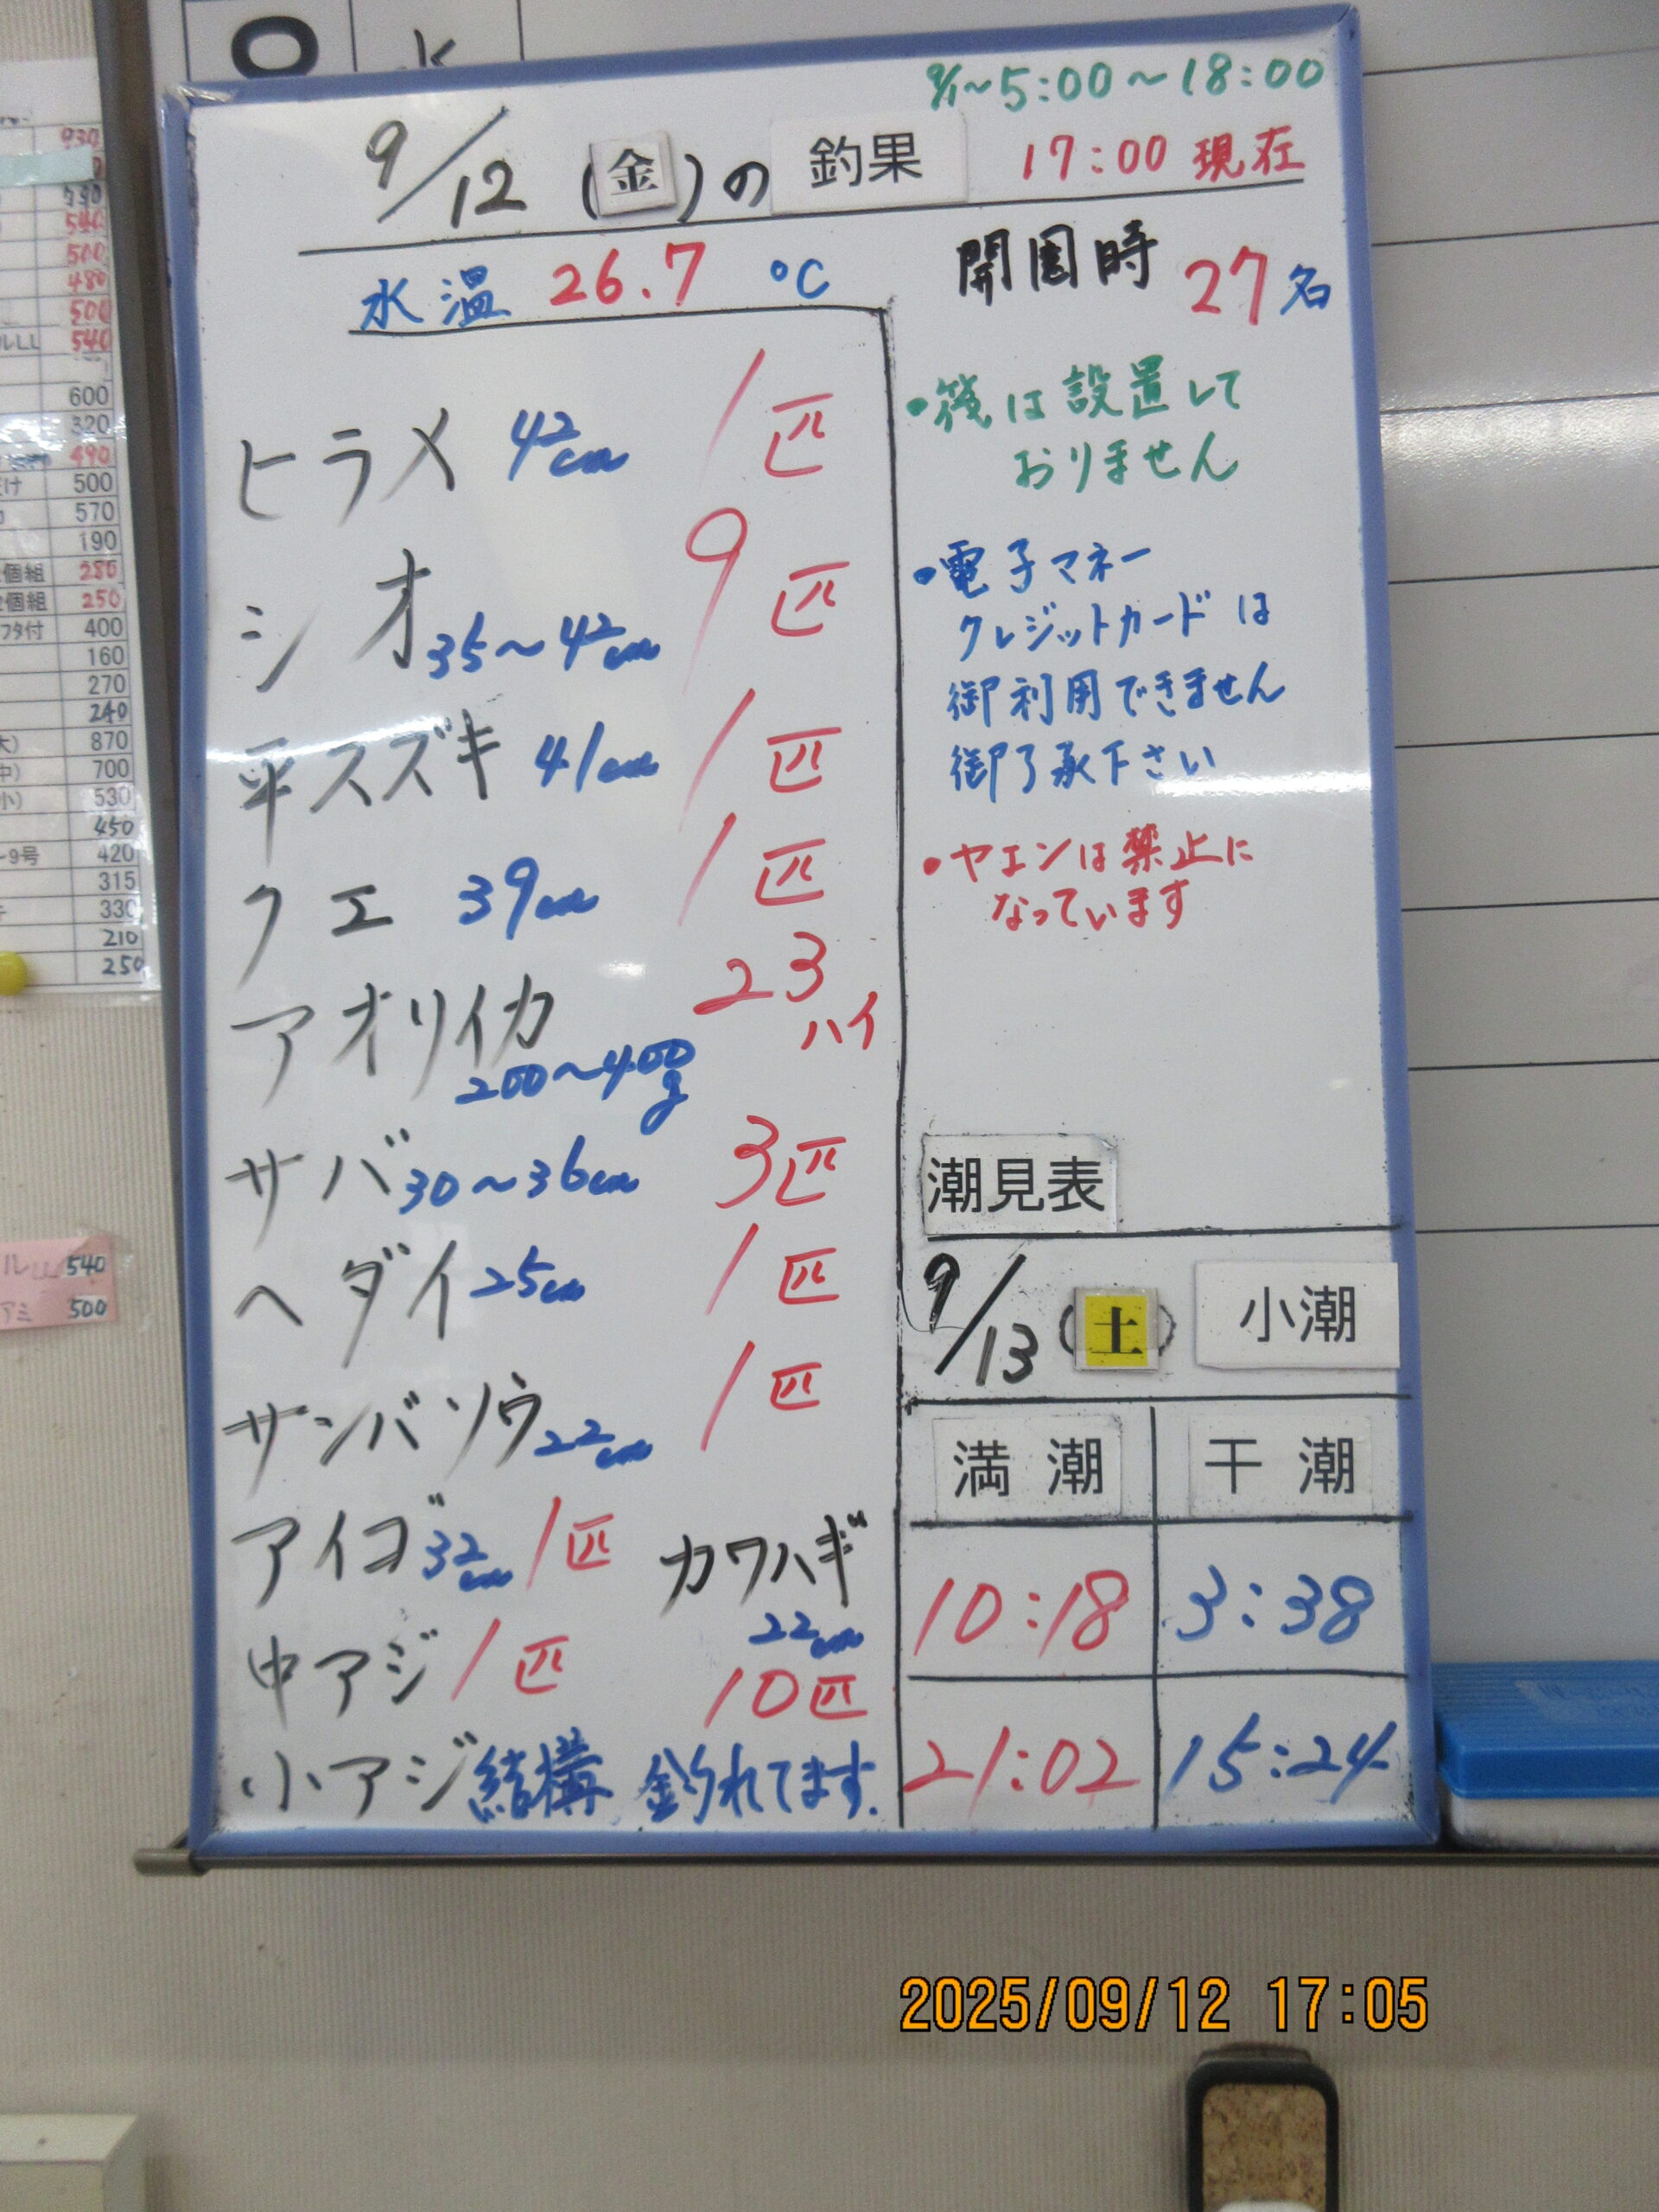 9/1~5:00~18:00
9/12(金)の 釣果 17:00 現在
水温 26.7 ℃
開園時 27名
ヒラメ 42cm 1匹
シオ 35~42cm 9匹
平スズキ 41cm 1匹
クエ 39cm 1匹
アオリイカ 200~400g 23ハイ
サバ 30~36cm 3匹
ヘダイ 25cm 1匹
サンバソウ 22cm 1匹
アイゴ 32cm 1匹
カワハギ 22cm 10匹
中アジ 1匹
小アジ 結構 釣れてます.
・筏は設置して
おりません
・電子マネー
クレジットカードは
御利用できません
御了承下さい
・ヤエンは禁止に
なっています
潮見表
9/13(土) 小潮
満潮 干潮
10:18 3:38
21:02 15:24
930
540
500
480
500
ルLL 540
600
320
490
500
570
190
個組 280
個組 250
フタ付 400
160
270
240
870
700
530
450
-9号 420
315
330
210
250
ルLL 540
アミ 500
2025/09/12 17:05